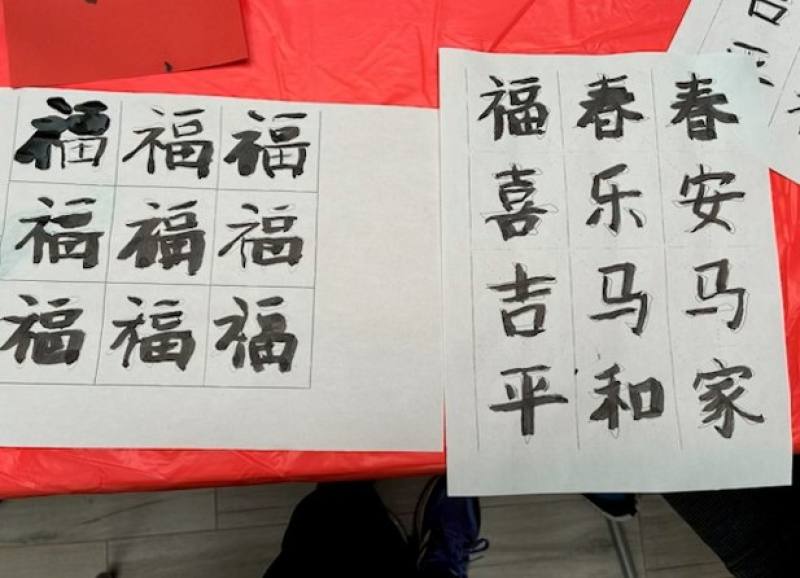 福福福
福福福
福福福
福春春
喜乐安
吉马马
平和家